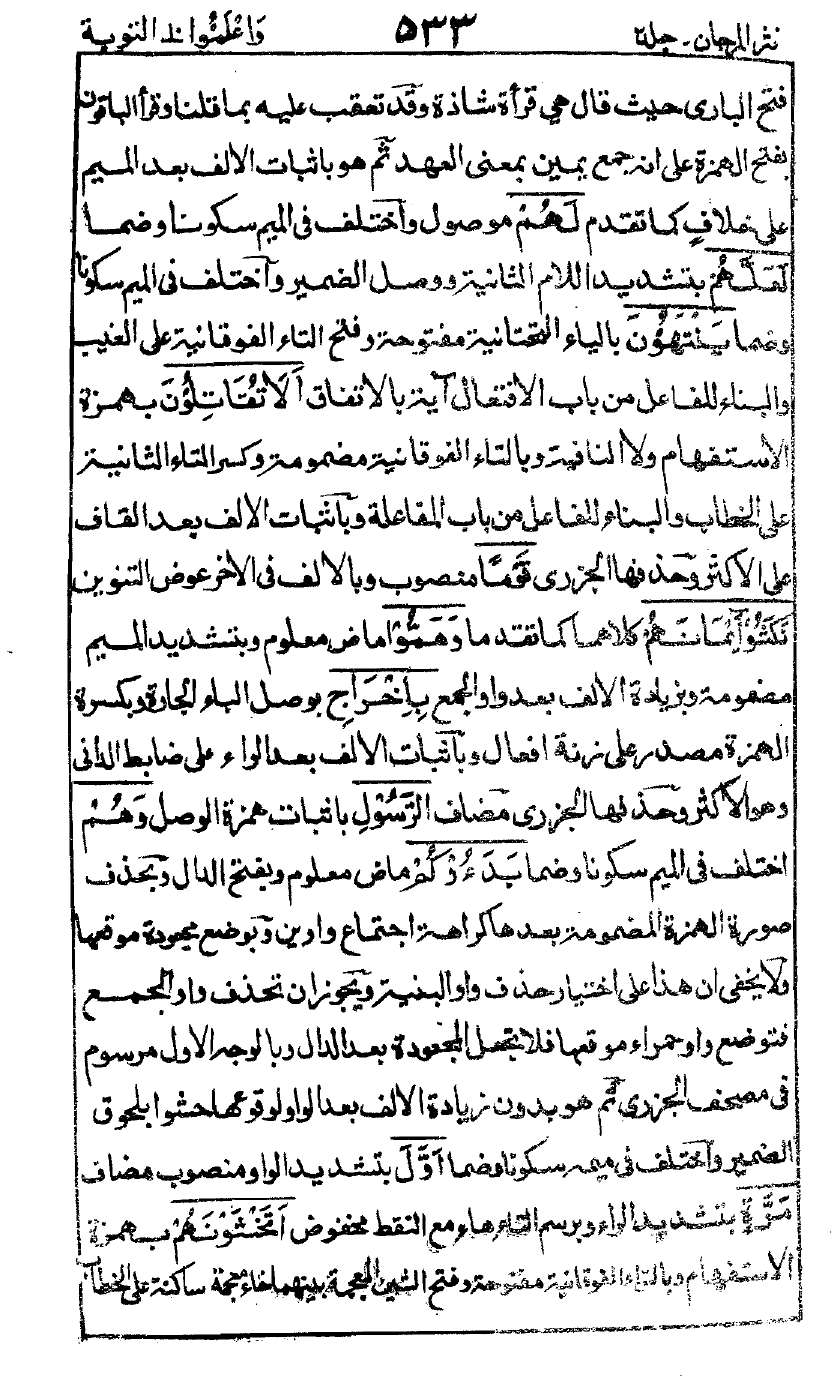 نثر المرجان - جلد ٢ ٥٣٣ واعلموا ١٠ التوبة
فتح البارى حيث قال هي قرأة شاذة وقد تعقب عليه بما قلنا وقرأ الباقون
بفتح الهمزة على انه جمع يمين بمعنى العهد ثم هو باثبات الالف بعد الميم
على خلافٍ كما تقدم لَهُمْ موصول واختلف فى الميم سكونا وضما
لَعَلَّهُمْ بتشديد اللام الثانية ووصل الضمير واختلف فى الميم سكونا
وضما يَنْتَهُوْنَ بالياء التحتانية مفتوحة وفتح التاء الفوقانية على الغيب
والبناء للفاعل من باب الافتعال آية بالاتفاق اَلَا تُقَاتِلُوْنَ بهمزة
الاستفهام ولا النافية وبالتاء الفوقانية مضمومة وكسر التاء الثانية
على الخطاب والبناء للفاعل من باب المفاعلة وباثبات الالف بعد القاف
على الاكثر وحذفها الجزرى قَوْمًا منصوب وبالالف فى الأخر عوض التنوين
نَكَثُوْا اَيْمَانَهُمْ كلاهما كما تقدما وَهَمُّوْا ماض معلوم وبتشديد الميم
مضمومة وبزيادة الالف بعد واو الجمع بِاِخْرَاجِ بوصل الباء الجارة وبكسرة
الهمزة مصدر على زنة افعال وباثبات الالف بعد الراء على ضابط الدانى
وهو الاكثر وحذفها الجزرى مضاف الرَّسُوْلِ باثبات همزة الوصل وَهُمْ
اختلف فى الميم سكونا وضما بَدَءُوْكُمْ ماض معلوم وبفتح الدال وبحذف
صورة الهمزة المضمومة بعدها كراهة اجتماع واوين وبوضع مجعودة موقعها
ولا يخفى ان هذا على اختيار حذف واو البنية ويجوز ان تحذف واو الجمع
فتوضع واو حمراء موقعها فلا تجعل المجعودة بعد الدال وبالوجه الاول مرسوم
فى مصحف الجزرى ثم هو بدون زيادة الالف بعد الواو لوقوعها حشوا بلحوق
الضمير واختلف فى ميمه سكونا وضما اَوَّلَ بتشديد الواو منصوب مضاف
مَرَّةٍ بتشديد الراء وبرسم التاء هاء مع النقط مخفوض اَتَخْشَوْنَهُمْ بهمزة
الاستفهام وبالتاء الفوقانية مفتوحة وفتح الشين المعجمة بينهما خاء معجمة ساكنة على الخطاب